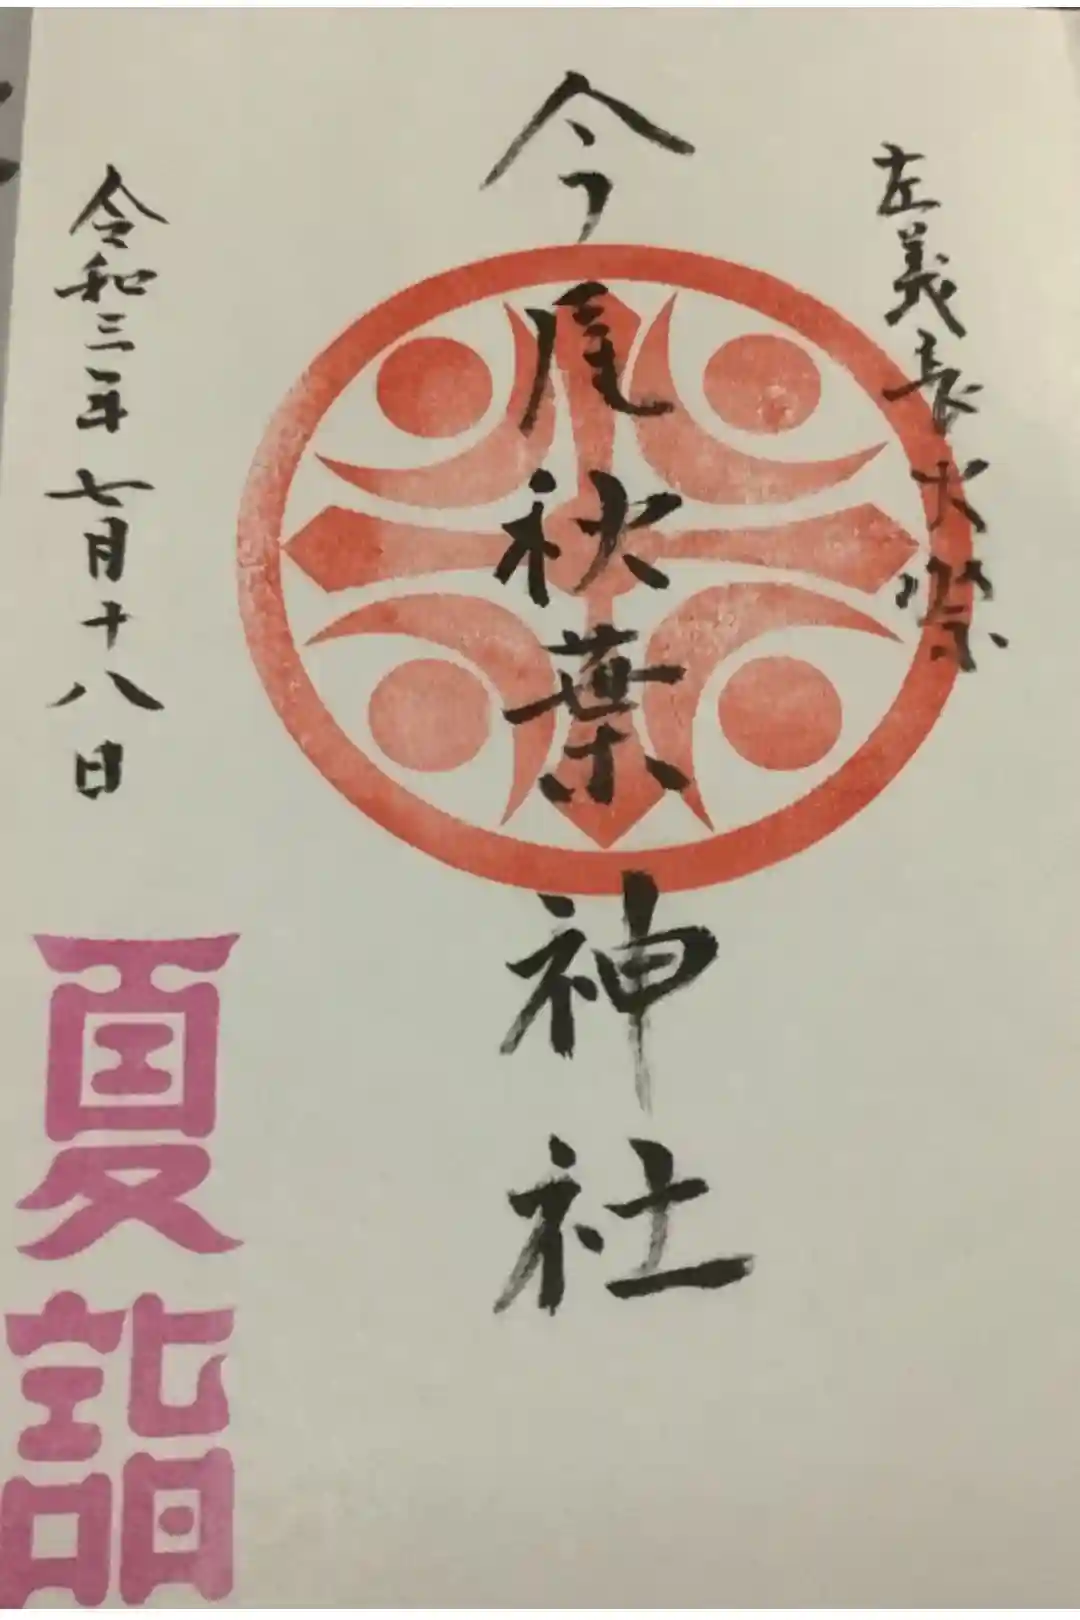 左義長大祭
今尾秋葉神社
令和三年七月十八日
夏詣